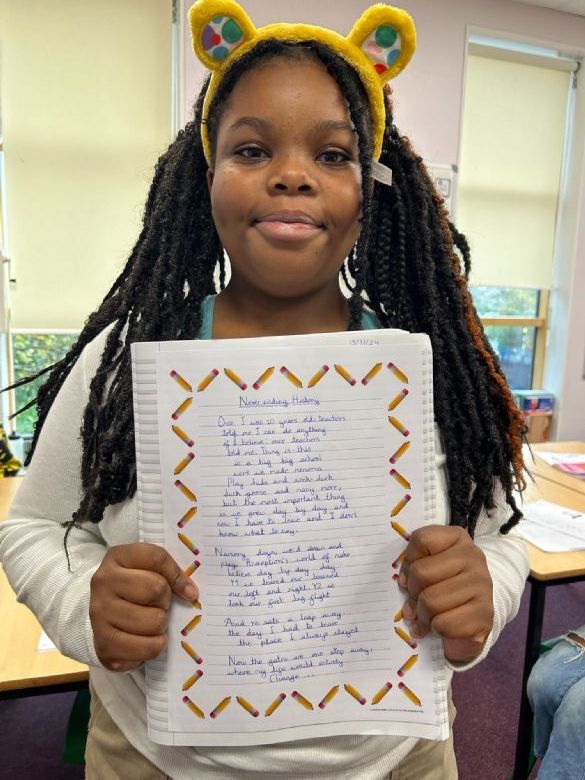 13/11/24
Never ending History
Once I was 10 years old teachers
told me I can do anything
if I believe: once teachers
told me. Thing is this
is a big big school
were we made
Play and
duck goose and many more,
but the most important thing
is we grew day by day and
now I have to leave and I don't
know what to say.
Nursery days, we'd draw and
play, Reception's world of make
believe day by day day
Y1 we leaned our learned
our left and right, Y2 we
took our first big flight
And a leap away
the day I had to leave
the place I always stayed
Now the gates are one step away,
where my life would
Change ...